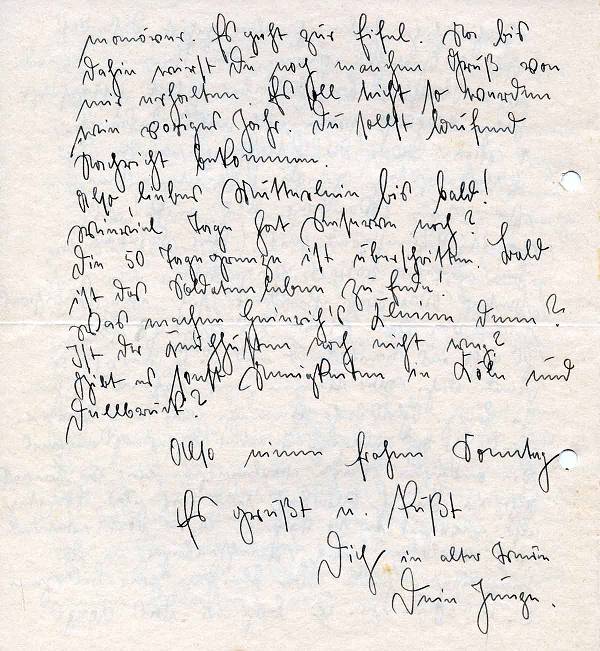 manöver. Es geht zur Eifel. Na bis
dahin wirst Du noch manchen Gruß von
mir erhalten. Es soll nicht so werden
wie voriges Jahr. Du sollst laufend
Nachricht bekommen.
Also, liebes Mutterlein bis bald!
Wieviel Tage hat noch?
Die 50 Tagegrenze ist überschritten. Bald
ist das Soldatenleben zu Ende!
Was machen Heinrich's Kleinen denn?
Ist der Keuchhusten noch nicht weg?
Gibt es sonst Neuigkeiten in Köln und
Dellbrück?
Also einen frohen Sonntag.
Es grüßt u. küßt
Dich in alter Treue
Dein Junge.